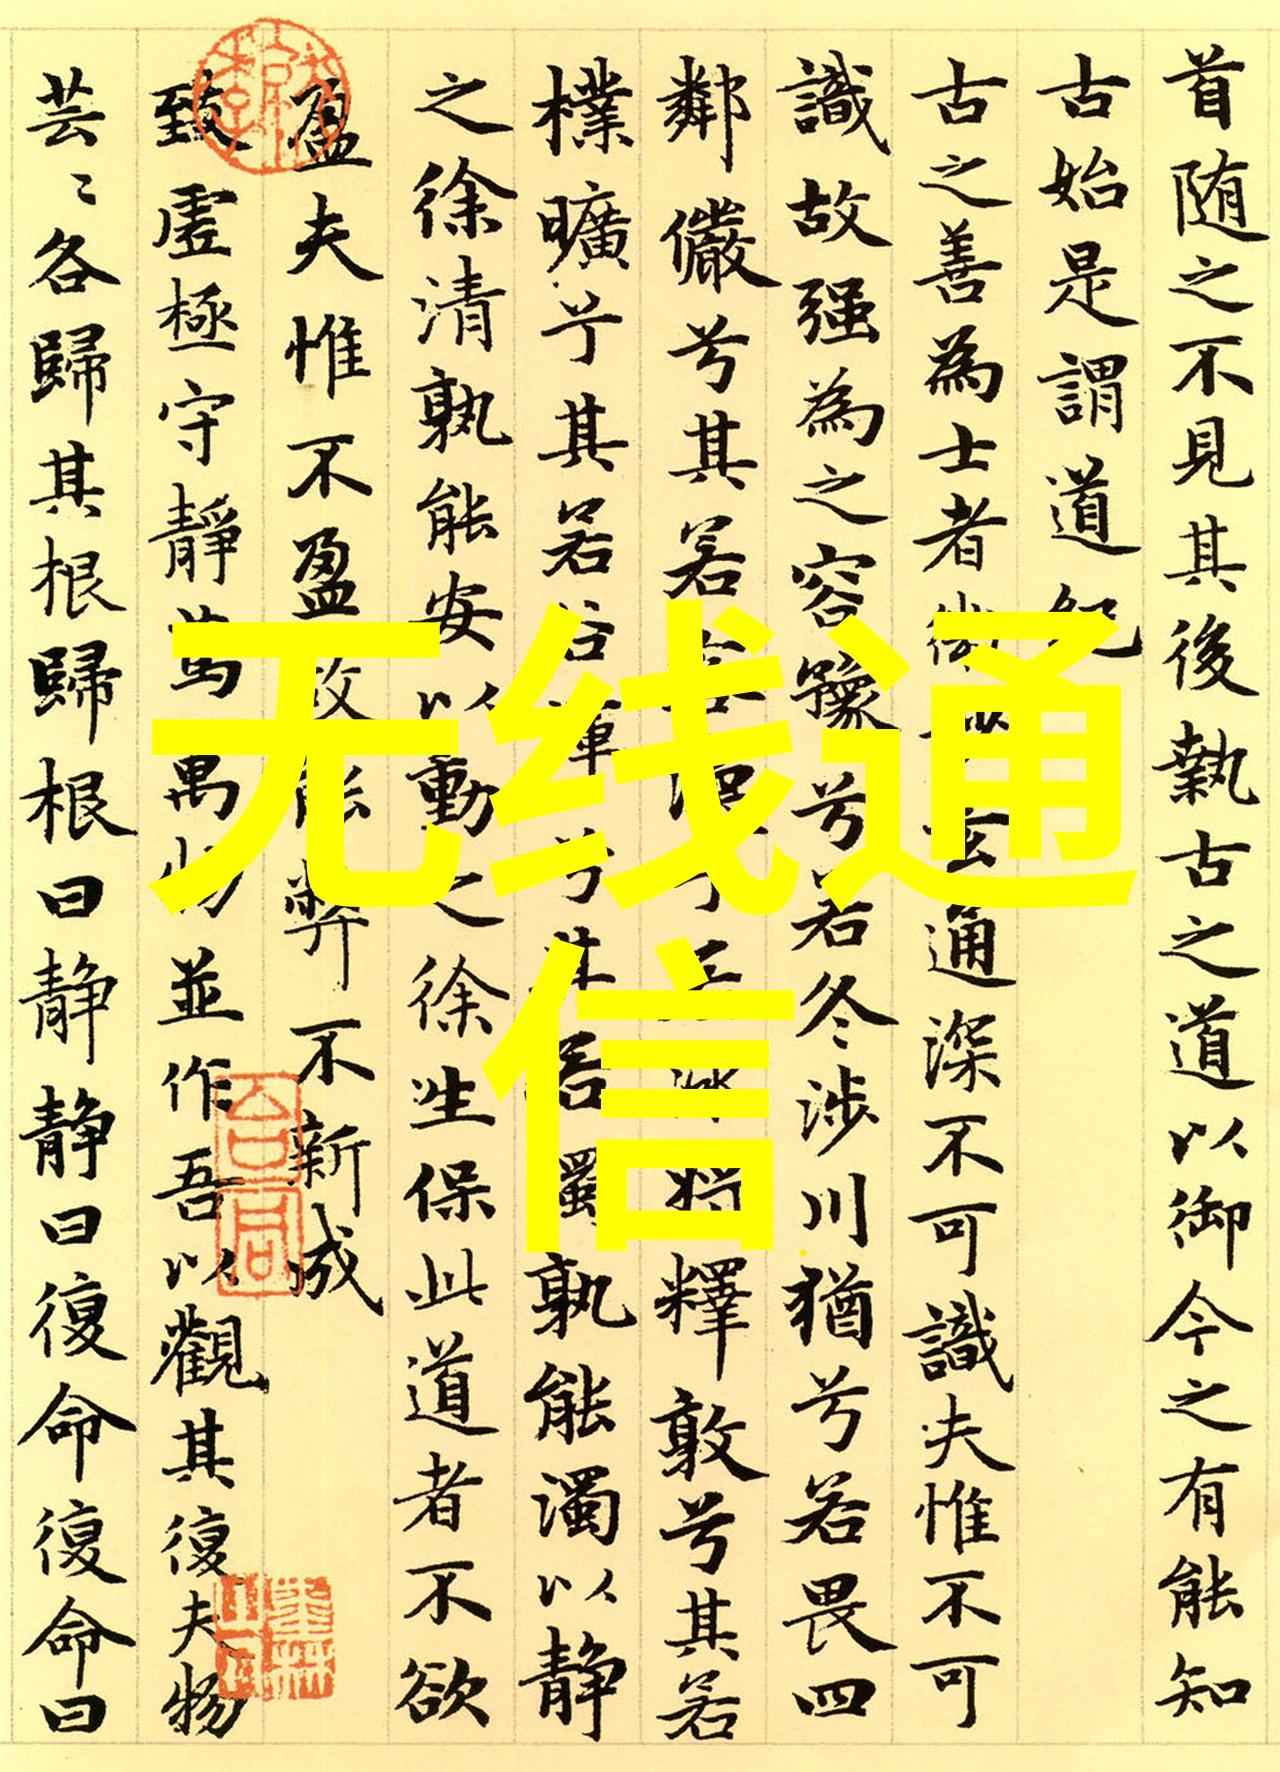 首随之不見其後執古之道以御今之有能知
古始是謂道紀
古之善為士者微玄通深不可識夫惟不可
識故强為之容豫兮若冬涉川猶兮若畏四
鄰儼兮其若客釋敦兮其若
樸曠兮其若谷渾兮其若濁孰能濁以靜
之徐清孰能安以動之徐生保此道者不欲
盈夫惟不盈故能弊不新成
致虛極守靜萬物並作吾以觀其復夫物
芸〻各歸其根歸根曰静静曰復命復命曰
无线通
信